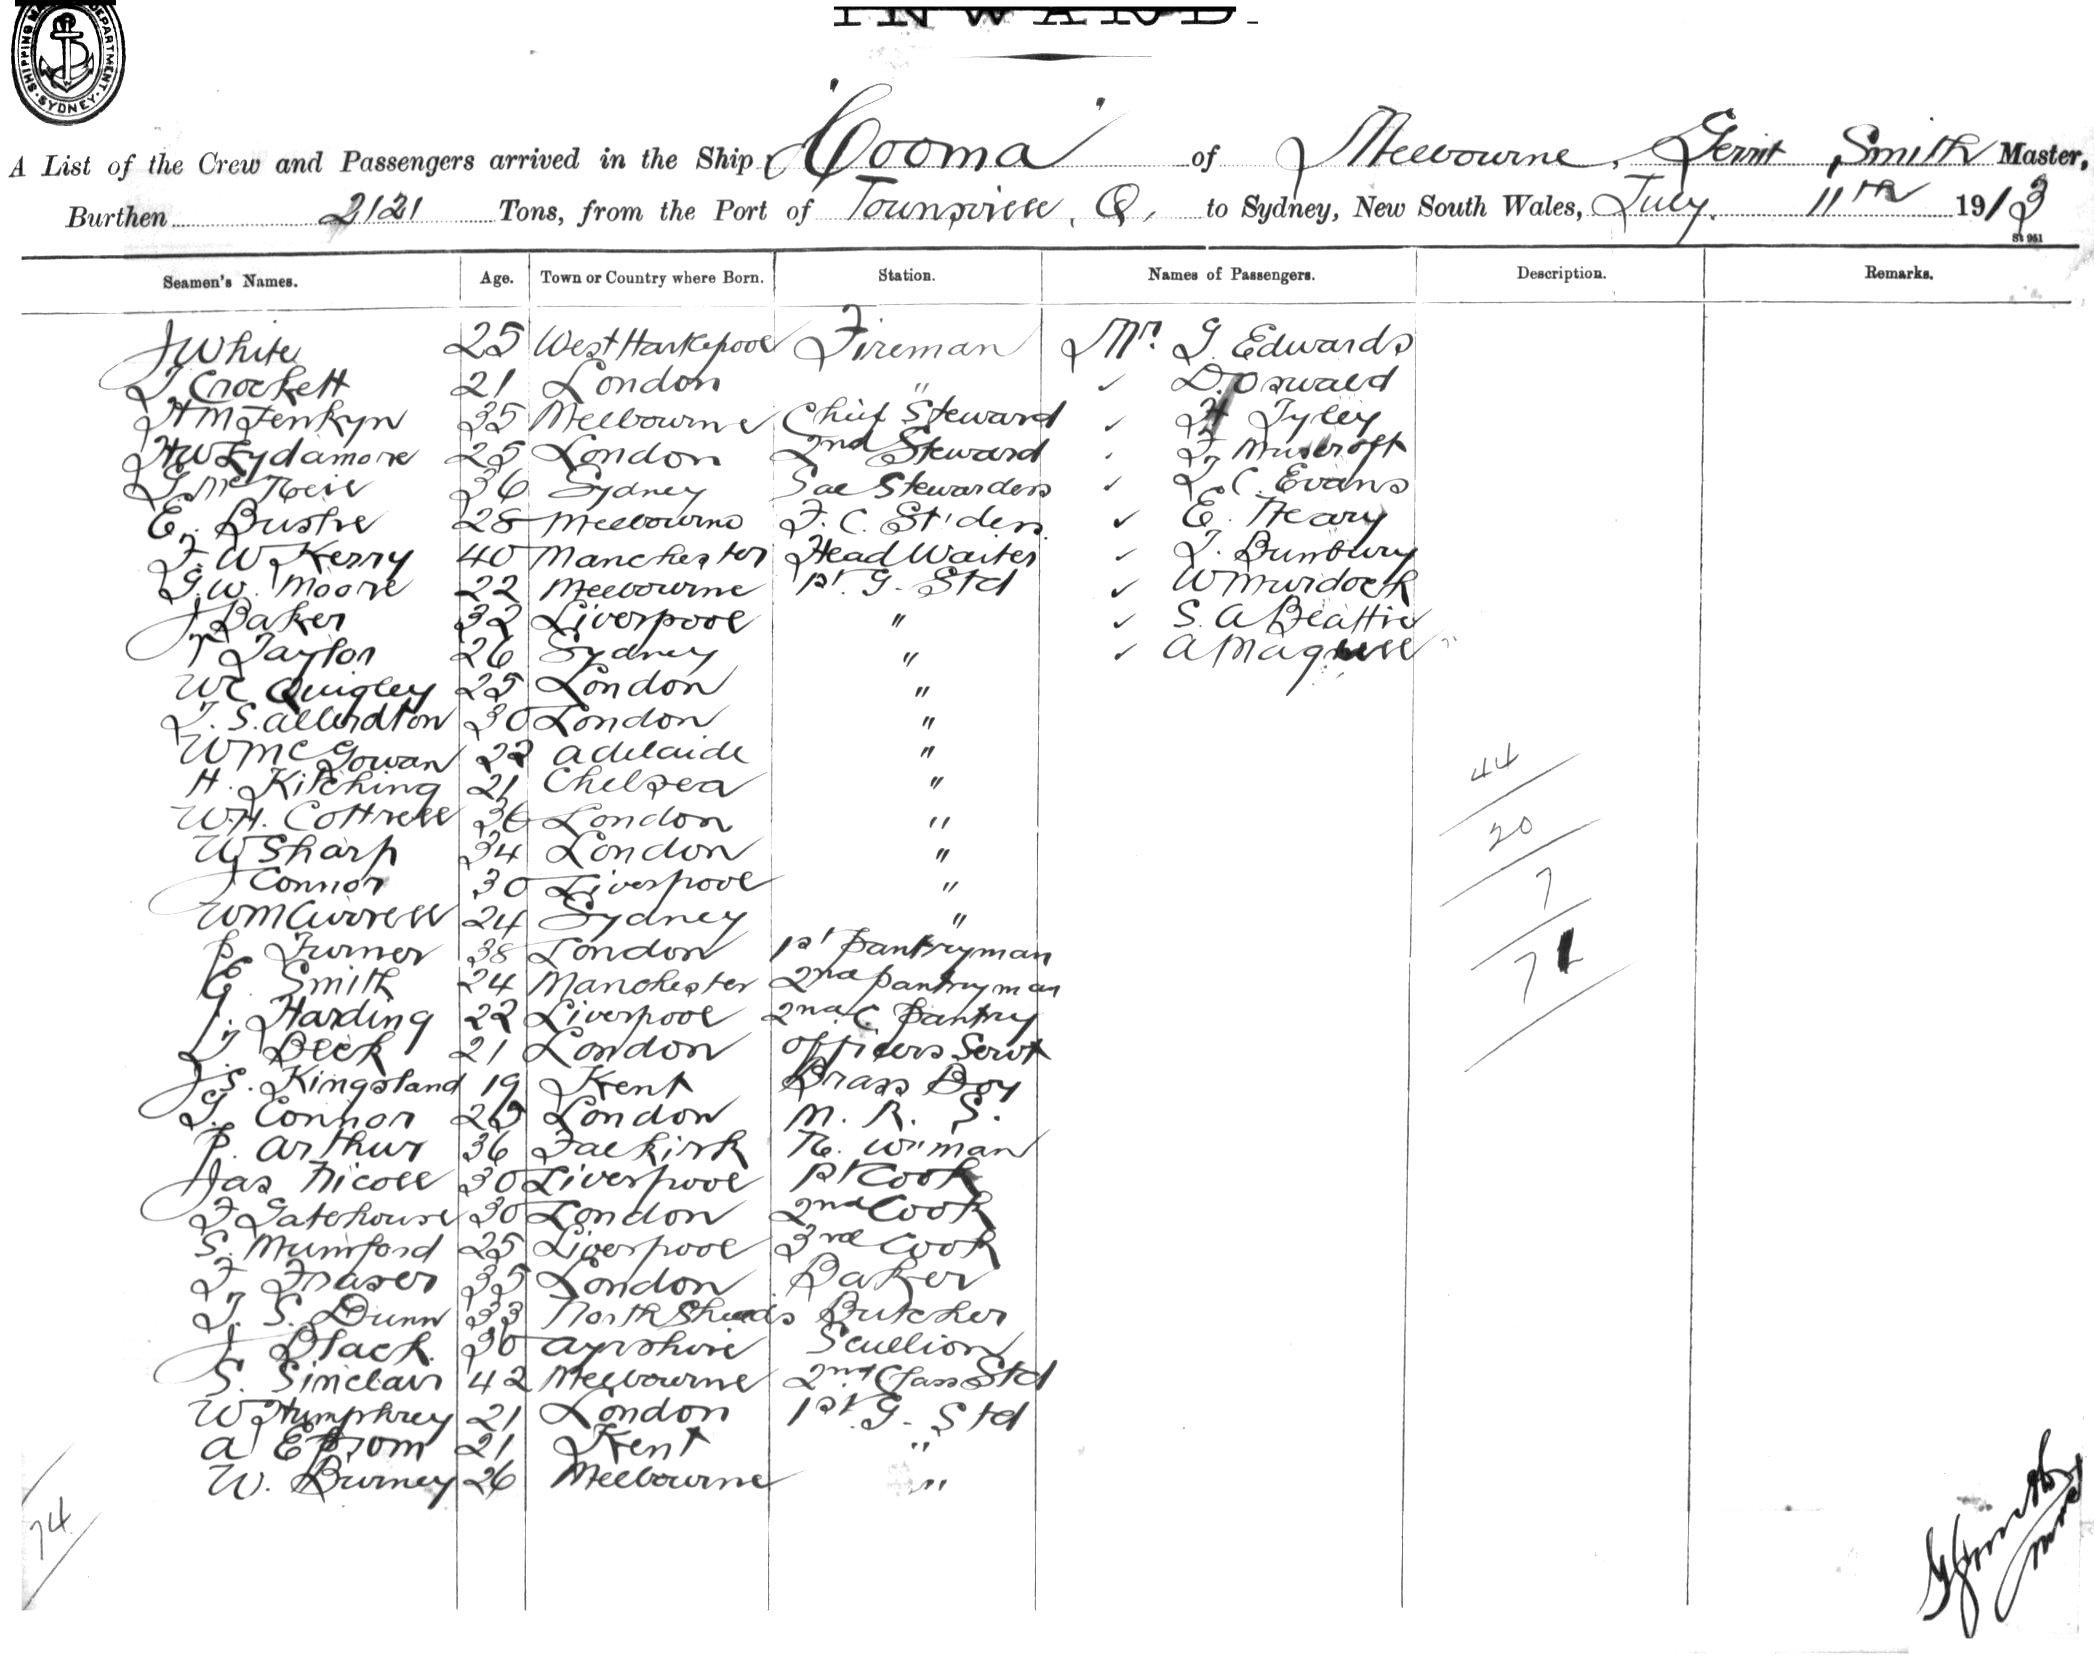 SHIPPING DEPARTMENT
SYDNEY
INWARD.
A List of the Crew and Passengers arrived in the Ship "Cooma" of Melbourne, Gerrit Smith Master,
Burthen 2121 Tons, from the Port of Townsville, Q, to Sydney, New South Wales, July. 11th 1913
St 951
Seamen's Names. Age. Town or Country where Born. Station. Names of Passengers. Description. Remarks.
J White 25 West Hartlepool Fireman Mr. G. Edwards
T Crockett 21 London " ✓ D. Oswald
H M Jenkyn 35 Melbourne Chief Steward ✓ H Tyley
H W Lydamore 25 London 2nd Steward T Muscroft
G McNeil 36 Sydney Sal Stewardess ✓ T. C. Evans
E. 28 Melbourne F. C. St'dess. ✓ E. Heary
F. W Kerry 40 Manchester Head Waiter ✓ T. Bunbury
G. W. Moore 22 Melbourne 1st. G. Std ✓ W Murdock
J Baker 32 Liverpool " ✓ S. A Beattie
T Taylor 26 Sydney " ✓ A
W Quigley 25 London "
T. S. Allerdton 30 London "
W McGowan 22 Adelaide "
H. Kitching 21 Chelsea "
44
W. H. Cottrell 36 London "
20
W Sharp 34 London "
J Connor 30 Liverpool "
7
W McCurrell 24 Sydney "
P Turner 38 London 1st Pantryman
71
E. Smith 24 Manchester 2nd Pantryman
J. Harding 22 Liverpool 2nd C. Pantry
T Beck 21 London Officers Servt
J. S. Kingsland 19 Kent Brass Boy
T. Connor 25 London M. R. S.
P. Arthur 36 Falkirk N. W'man
Jas Nicoll 30 Liverpool 1st Cook
F Gatehouse 30 London 2nd Cook
S. Mumford 25 Liverpool 3rd Cook
F. Fraser 35 London Baker
T. S. Dunn 33 North Shields Butcher
J Black. 30 Ayrshire Scullion
S. Sinclair 42 Melbourne 2nd Class Std
W Humphrey 21 London 1st. G. Std
A E Prom 21 Kent "
W. Burney 26 Melbourne "
74